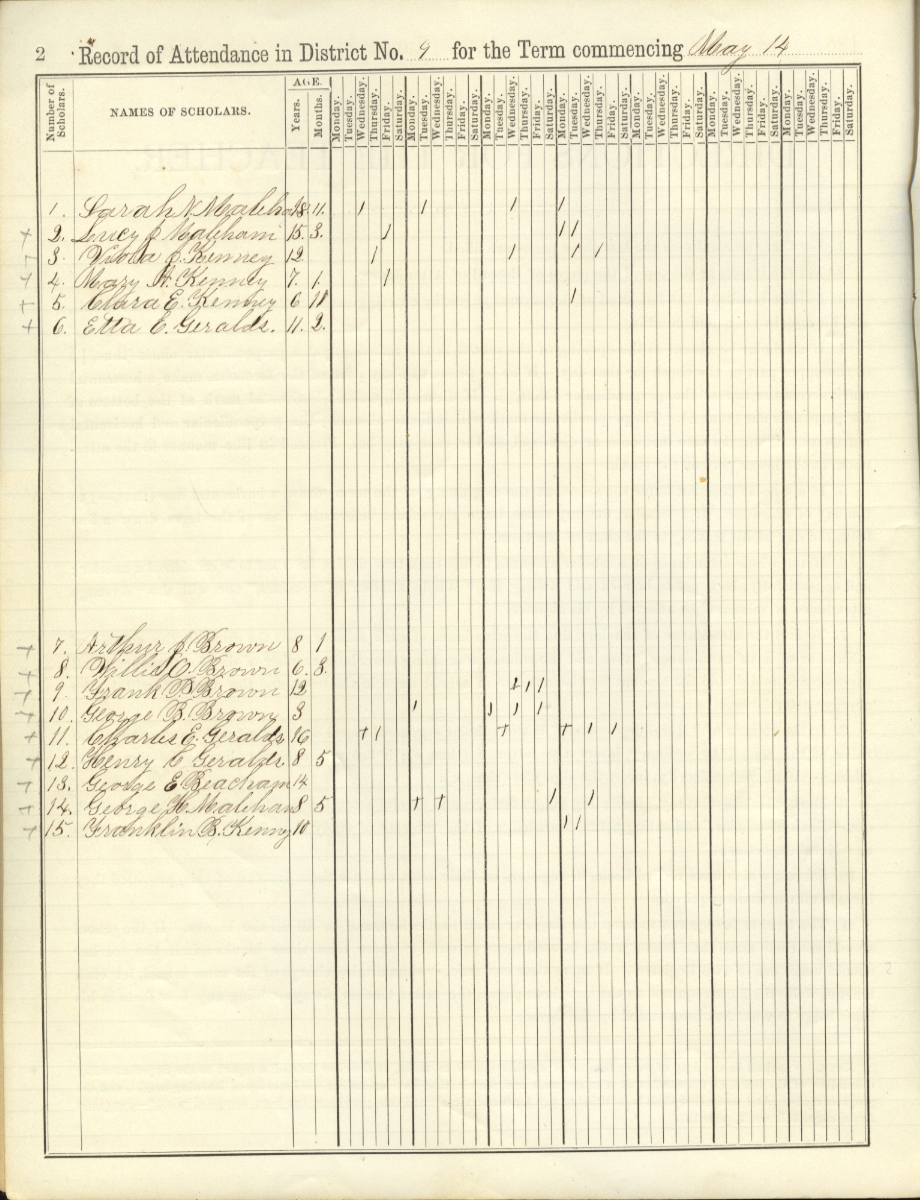 2 Record of Attendance in District No. 9 for the Term commencing May 14
Number of Scholars. NAMES OF SCHOLARS. AGE. Years. Months. Monday. Tuesday. Wednesday. Thursday. Friday. Saturday. Monday. Tuesday. Wednesday. Thursday. Friday. Saturday. Monday. Tuesday. Wednesday. Thursday. Friday. Saturday. Monday. Tuesday. Wednesday. Thursday. Friday. Saturday. Monday. Tuesday. Wednesday. Thursday. Friday. Saturday. Monday. Tuesday. Wednesday. Thursday. Friday. Saturday. Monday. Tuesday. Wednesday. Thursday. Friday. Saturday.
1. Sarah N. 18 11.
2. Lucy J. Maleham 15. 3.
3. J. Kenney 12
4. Mary A. Kenney 7. 1.
5. Clara E. Kenney 6 11
6. Etta C. Geralds. 11. 2.
7. Arthur J. Brown 8 1
8. Willie O. Brown 6. 3.
9. Frank P. Brown 12
10. George B. Brown 3
11. Charles E. Geralds 16
12. Henry C Geralds 8 5
13. George E Beacham 14
14. George H. Maleham 8 5
15. Franklin B. Kenny 10